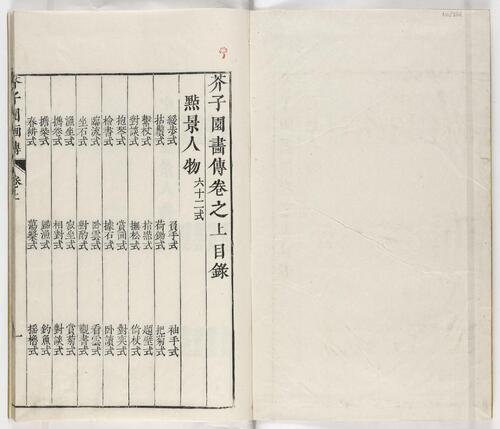 芥子園畵傳卷之上目錄
點景人物 六十二式
緩步式 負手式 袖手式
拈鬚式 荷鋤式 把菊式
繫杖式 拾菓式 題壁式
對談式 撫松式 倚杖式
抱琴式 賞圖式 對奕式
檢書式 據石式 卧讀式
臨流式 卧雲式 看雲式
坐石式 對酌式 觀書式
漁坐式 寂坐式 賞菊式
攜卷式 相對式 對談式
擕柴式 歸漁式 釣魚式
春耕式 搖櫓式
芥子園畵傳 卷之上 一